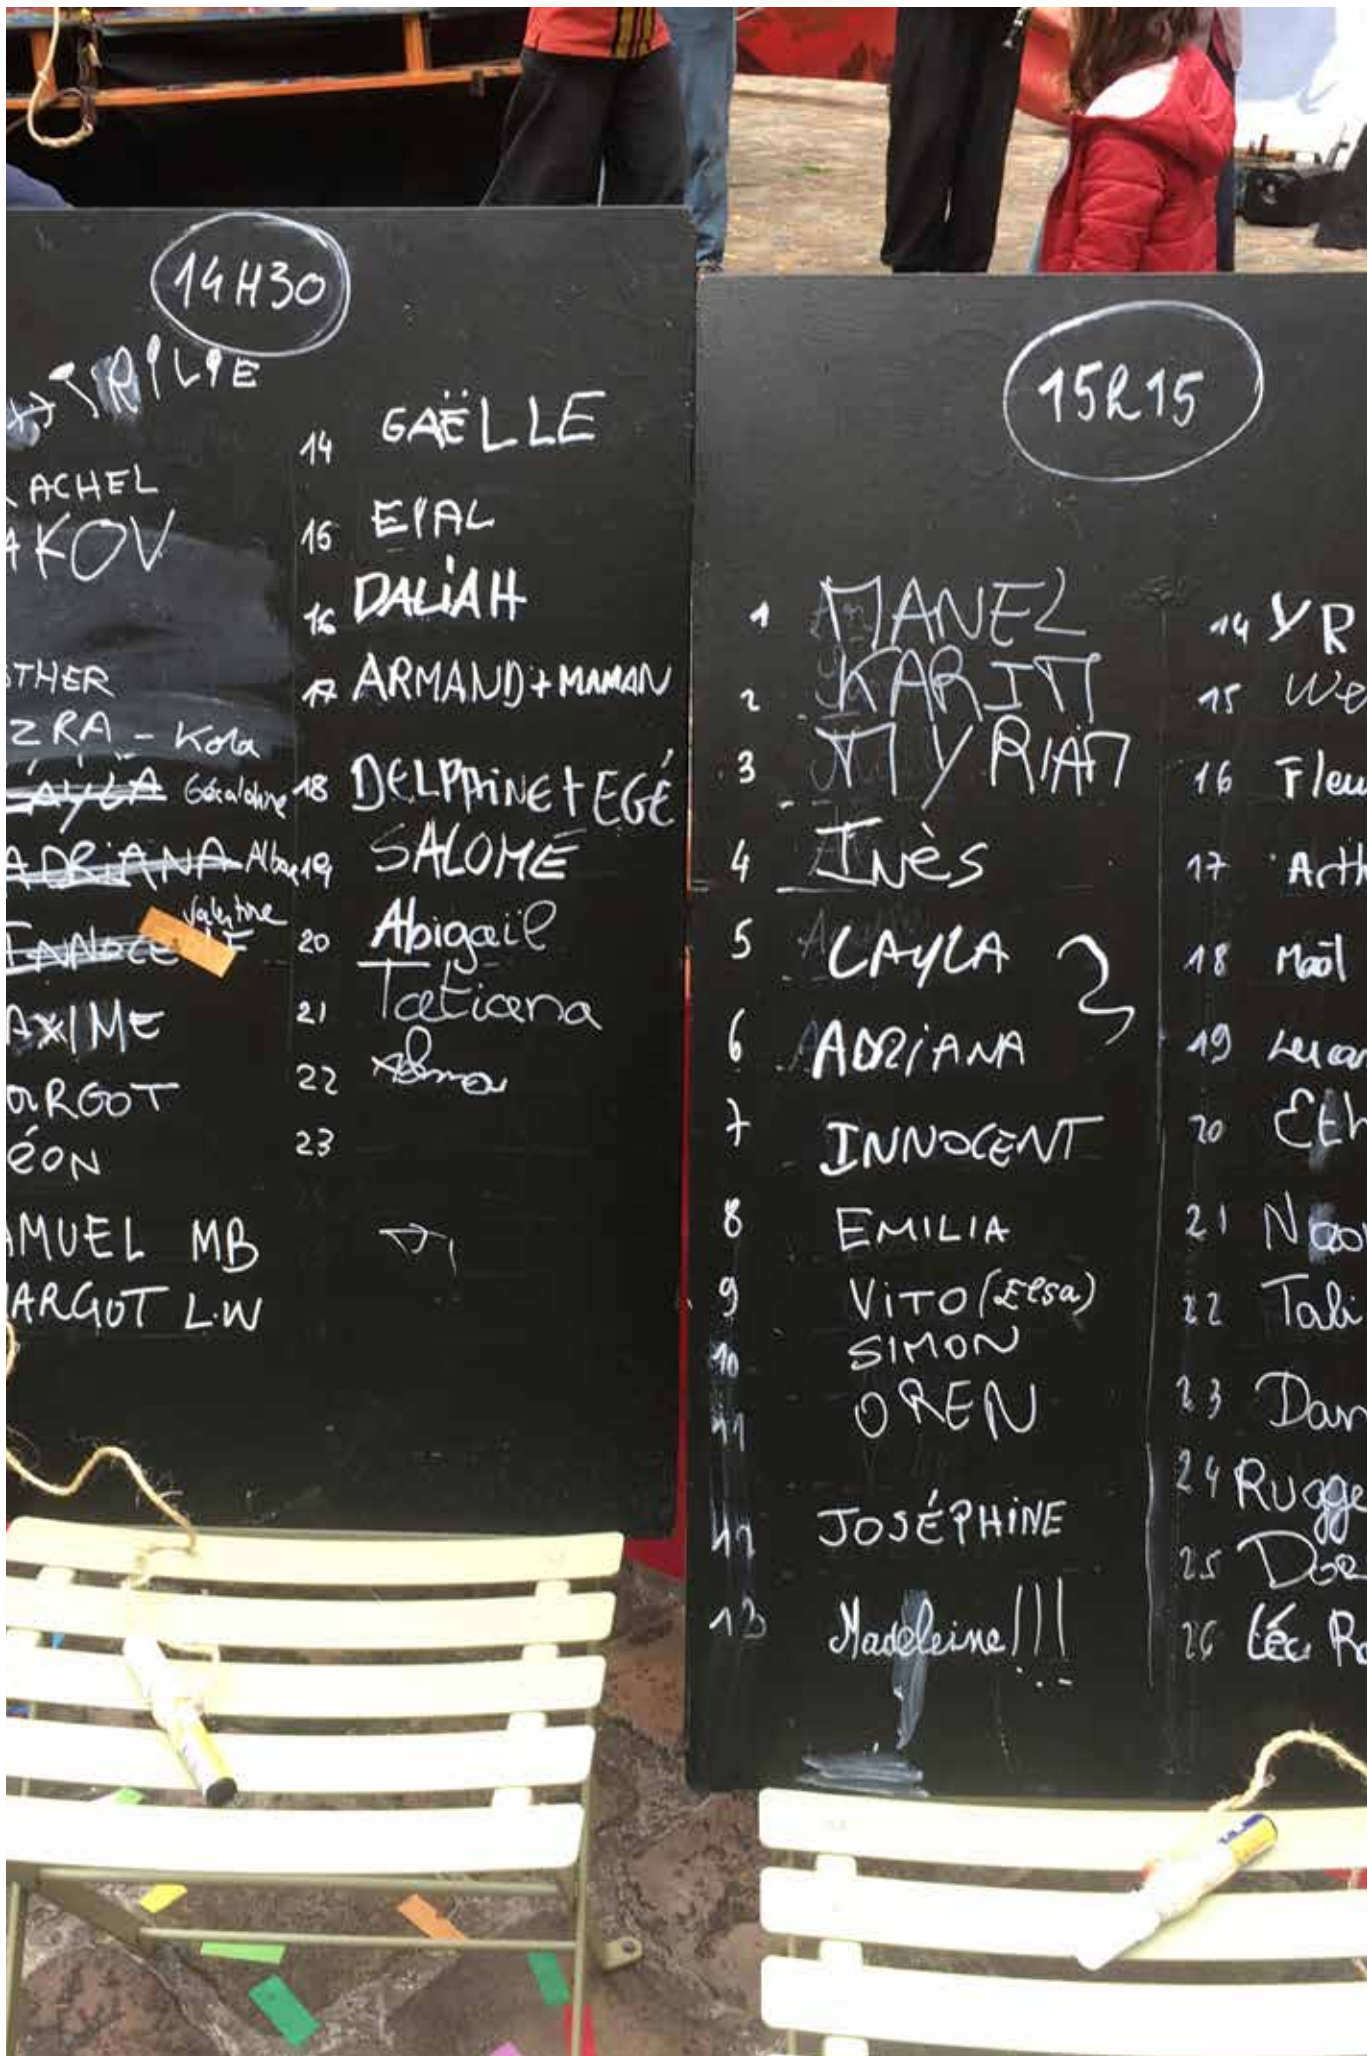 14H30
RILIE
ACHEL
AKOV
THER
ZRA - Kola
LAYLA Géraldine
ADRIANA Alba
INNOCE Valentine
AXIME
ARGOT
ÉON
AMUEL MB
ARGOT L.W
14 GAËLLE
15 EYAL
16 DALIAH
17 ARMAND + MAMAN
18 DELPHINE + EGÉ
19 SALOMÉ
20 Abigaïl
21 Tatiana
22 Alma
23
15h15
1 MANEL
2 KARIM
3 MYRIAM
4 Inès
5 LAYLA
6 ADRIANA
7 INNOCENT
8 EMILIA
9 VITO (Elsa)
10 SIMON
11 OREN
12 JOSÉPHINE
13 Madeleine!!!
14 YR
15 We
16 Fleu
17 Arth
18 Maël
19
20 Eth
21 Nao
22 Tali
23 Dan
24 Rugge
25 Dor
26 Léo Ro